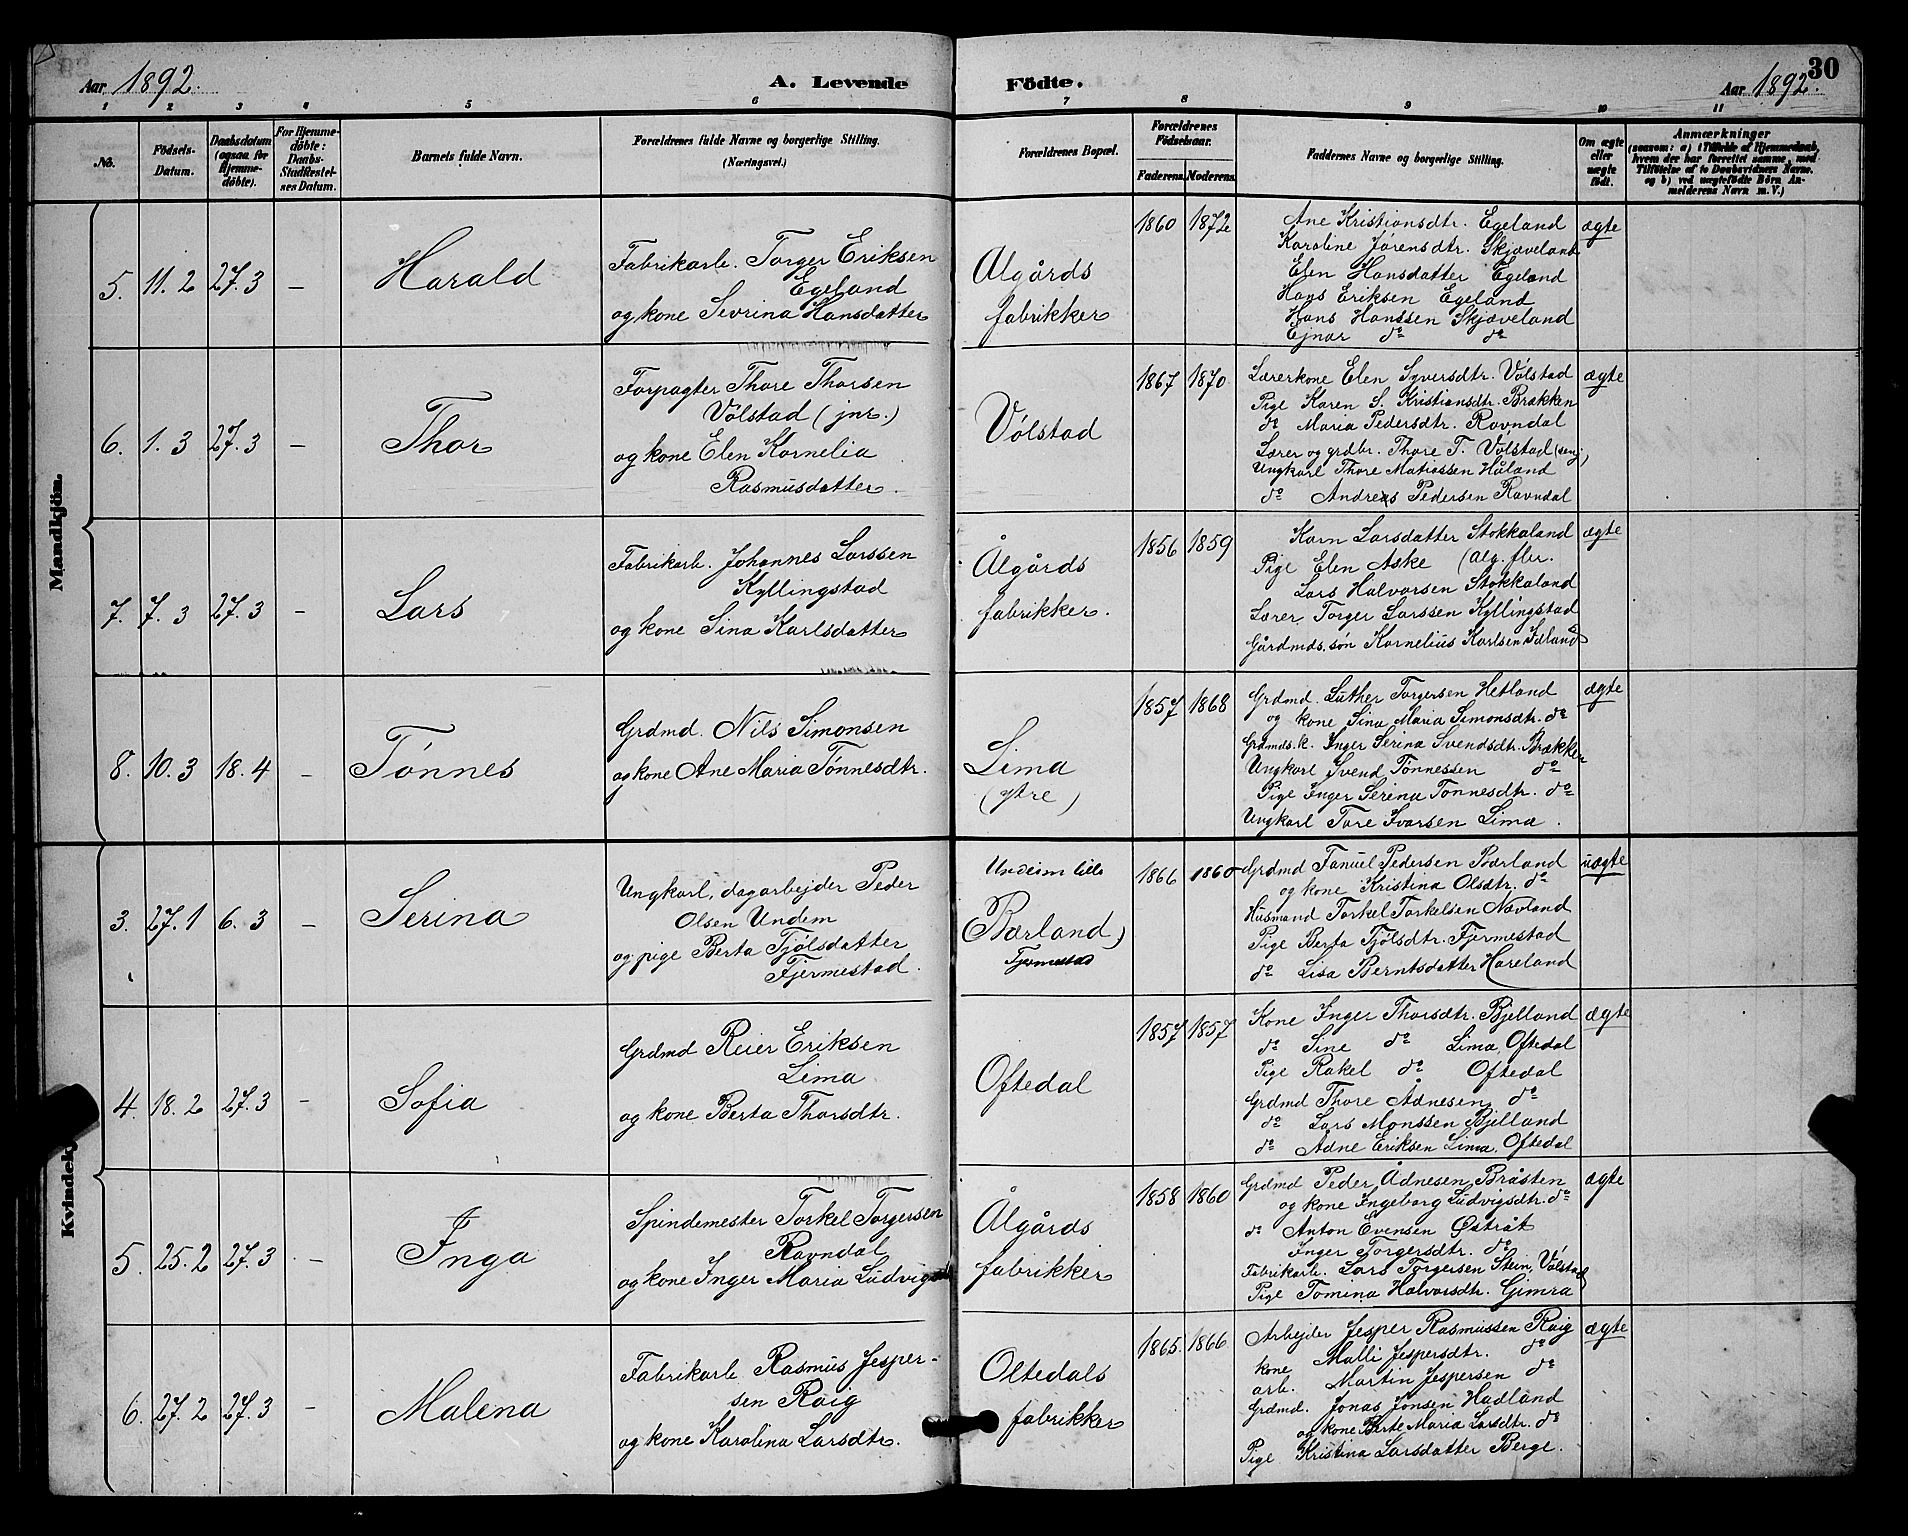 Aar 1892.
A. Levende Födte.
Aar 1892.
30
1 2 3 4 5 6 7 8 9 10 11
No.
Födsels-Datum.
Daabsdatum (ogsaa for Hjemmedöbte).
For Hjemmedöbte: Daabs-Stadfæstelses Datum.
Barnets fulde Navn.
Forældrenes fulde Navne og borgerlige Stilling. (Næringsvei.)
Forældrenes Bopæl.
Forældrenes Födselsaar.
Faderens. Moderens.
Faddernes Navne og borgerlige Stilling.
Om ægte eller uægte födt.
Anmærkninger
(saasom: a) Tilfælde af Hjemmedaab, hvem der har forrettet samme, med Tilföielse af to Daabsvidners Navne. og b) ved uægtefödte Börn Anmelderens Navn m. V.)
Mandkjön.
5. 11.2 27.3 – Harald
Fabrikarb. Torger Eriksen
Egeland
og kone Sevrina Hansdatter
Ålgårds
fabrikker
1860 1872
Ane Kristiansdtr. Egeland
Karoline Jørensdtr. Skjæveland
Elen Hansdatter Egeland
Hans Eriksen Egeland
Hans Hanssen Skjæveland
Ejnar do do
ægte
6. 1.3 27.3 – Thor
Forpagter Thore Thorsen
Vølstad (jnr.)
og kone Elen Kornelia
Rasmusdatter.
Vølstad
1867 1870
Lærerkone Elen Syversdtr. Vølstad
Pige Karen S. Kristiansdtr. Brækken
do Maria Pedersdtr. Ravndal
Lærer og grdbr. Thore T. Vølstad (sen.)
Ungkarl Thore Matiassen Håland
do Andreas Pedersen Ravndal
ægte
7. 7.3 27.3 – Lars
Fabrikarb. Johannes Larssen
Kyllingstad
og kone Sina Karlsdatter
Ålgårds
fabrikker.
1856 1859
Karn Larsdatter Stokkaland
Pige Elen Aske (Alg. fbr.
Lars Halvorsen Stokkaland
Lærer Torger Larssen Kyllingstad
Gårdmds. søn Kornelius Karlsen Idland
ægte
8. 10.3 18.4 – Tønnes
Grdmd. Nils Simonsen
og kone Ane Maria Tønnesdtr.
Lima
(ytre)
1857 1868
Grdmd. Luther Torgersen Hetland
og kone Sina Maria Simonsdtr. do
Grdmds.k. Inger Serina Svendsdtr. Brækken
Ungkarl Svend Tønnessen do
Pige Inger Serina Tønnesdtr. do
Ungkarl Tore Ivarsen Lima.
ægte
Kvindekj
3. 27.1 6.3 – Serina
Ungkarl, dagarbejder Peder
Olsen Undem
og pige Berta Tjølsdatter
Fjermestad.
Undeim lille
Bærland)
Fjermestad
1866 1860
Grdmd Tanuel Pedersen Bærland
og kone Kristina Olsdtr. do
Husmand Torkel Torkelsen Nævland
Pige Berta Tjølsdtr. Fjermestad
do Lisa Berntsdatter Hareland
uægte
4. 18.2 27.3 – Sofia
Grdmd Reier Eriksen
Lima
og kone Berta Thorsdtr.
Oftedal
1857 1857
Kone Inger Thorsdtr. Bjelland
do Sine do Lima Oftedal
Pige Rakel do Oftedal
Grdmd Thore Ådnesen do
do Lars Monssen Bjelland
do Ådne Eriksen Lima, Oftedal
ægte
5. 25.2 27.3 – Inga
Spindemester Torkel Torgersen
Ravndal
og kone Inger Maria Ludvigsd
Ålgårds
fabrikker
1858 1860
Grdmd Peder Ådnesen Bråsten
og kone Ingeborg Ludvigsdtr. do
do Anton Evensen Østråt
Inger Torgersdtr. do
Fabrikarb. Lars Torgersen Stein, Vølstad
Pige Tomina Halvorsdtr. Gimra
ægte
6. 27.2 27.3 – Malena
Fabrikarb. Rasmus Jesper-
sen Raig
og kone Karolina Larsdtr.
Oltedals
fabrikker
1865. 1866
Arbejder Jesper Rasmussen Raig
kone Malli Jespersdtr. do
arb. Martin Jespersen do
Grdmd. Jonas Jonsen Hadland
og kone Berte Maria Larsdtr. do
Pige Kristina Larsdatter Berge.
ægte